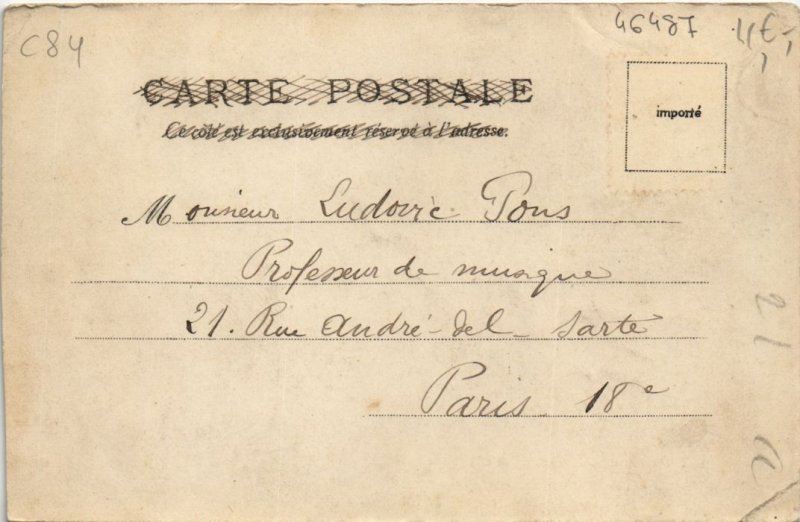 C84
46487
4€
CARTE POSTALE
Ce côté est exclusivement réservé à l'adresse.
importé
Monsieur Ludovic Pons
Professeur de musique
21. Rue André-del-Sarte
Paris 18e
21